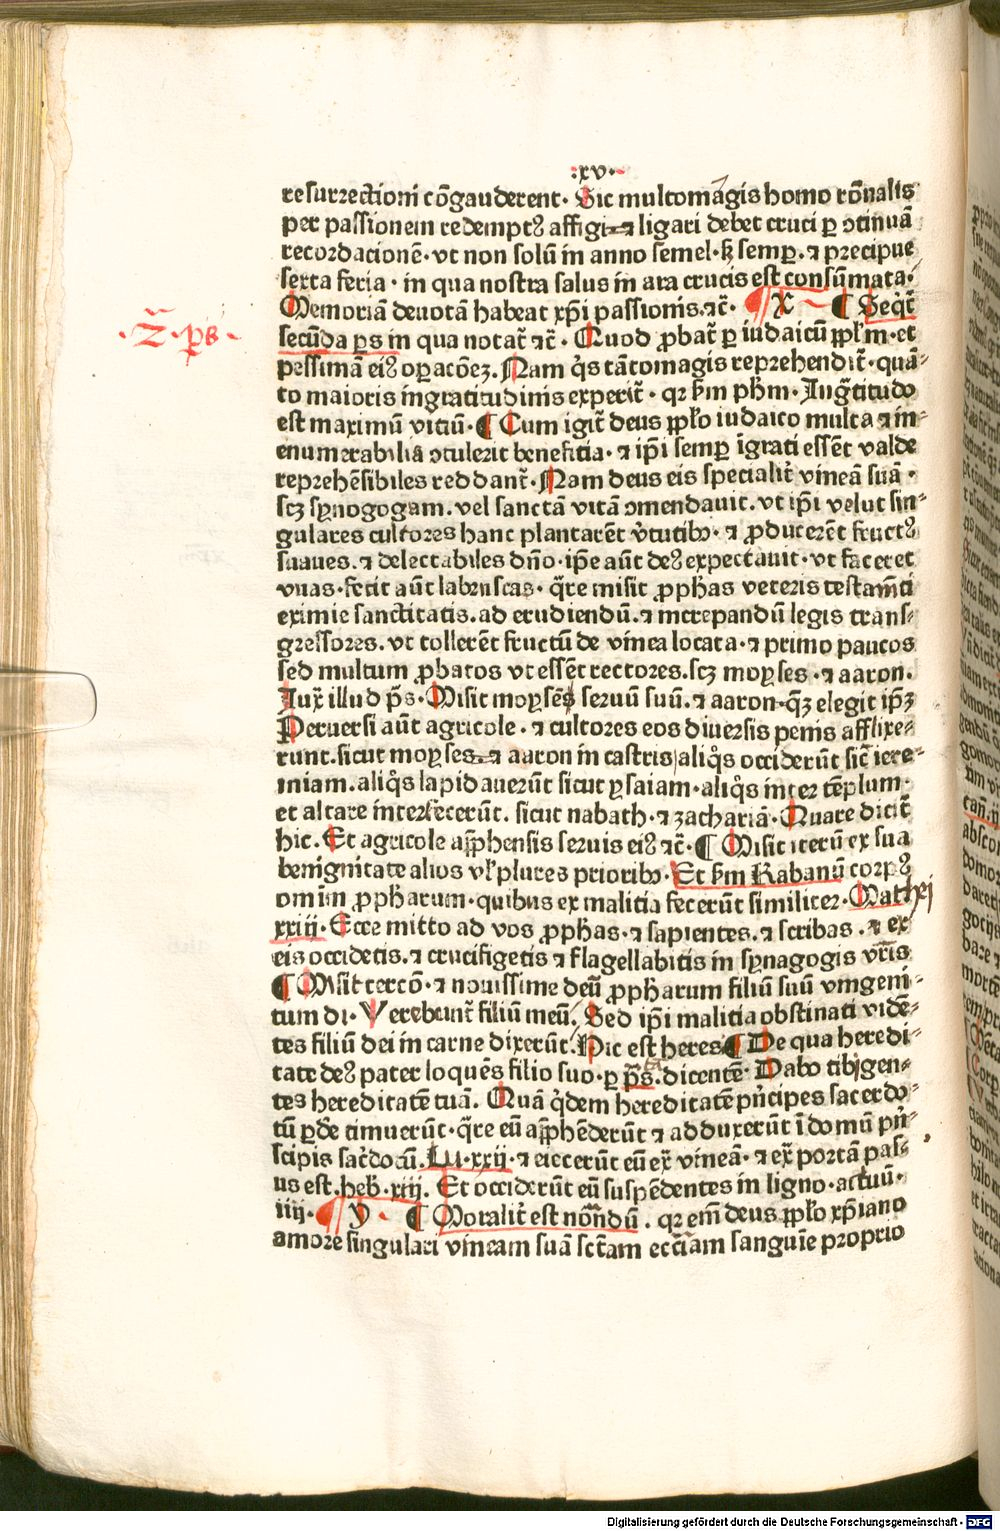 ·xv·
resurrectioni cōgauderent· Sic multomagis homo rōnalis
per passionem redemptꝰ affigi ⁊ ligari debet cruci ꝑ ↄtinuā
recordacionē· vt non solū in anno semel· sꝫ semꝑ· ⁊ precipue
sexta feria· in qua nostra salus in ara crucis est consūmata·
Memoriā deuotā habeat xp̄i passionis. ⁊c̄· ¶ X ¶ Seqt̄
·2ᵃ· ps·
secūda ps in qua notat̄ ⁊c̄· Quod ꝓbat̄ ꝑ iudaicū pp̄lm· et
pessimā eiꝰ oꝑacōeꝫ. Nam q̄s tātomagis reprehendit̄· quā-
to maioris ingratitudinis experit̄· qꝛ ẜm ph̄m· Ingr̄titudo
est maximū vitiū· ¶ Cum igit̄ deus pp̄lo iudaico multa ⁊ in-
enumerabilia ↄtulerit beneficia· ⁊ ip̄i semꝑ īgrati essēt valde
reprehēsibiles reddant̄· Nam deus eis specialit̄ vineā suā·
scꝫ synogogam. vel sanctā vitā ↄmendauit. vt ip̄i velut sin-
gulares cultores hanc plantarēt v̄tutibꝰ· ⁊ ꝓducerēt fructꝰ
suaues. ⁊ delectabiles dn̄o· ip̄e aūt deꝰ expectauit· vt faceret
vuas· fecit aūt labruscas· q̄re misit ꝓph̄as veteris testam̄ti
eximie sanctitatis. ad erudiendū. ⁊ increpandū legis trans-
gressores. vt tollerēt fructū de vinea locata· ⁊ primo paucos
sed multum ꝓbatos vt essēt rectores. scꝫ moyses· ⁊ aaron.
Iux̄ illud ps̄· Misit moysēs seruū suū. ⁊ aaron· qꝫ elegit ip̄ꝫ
Peruersi aūt agricole· ⁊ cultores eos diuersis penis afflixe-
runt. sicut moyses ⁊ aaron in castris aliq̄s occiderūt sic̄ iere-
miam. aliq̄s lapidauerūt sicut ysaiam· aliq̄s inter tēplum·
et altare interfecerūt. sicut nabath· ⁊ zachariā· Quare dicit̄
hic. Et agricole app̄hensis seruis eiꝰ ⁊c̄· ¶ Misit iterū ex sua
benignitate alios vl̄ plures prioribꝰ· Et ẜm Rabanū corpꝰ
omīm ꝓph̄arum· quibus ex malitia fecerūt similiter· Mathei
xxiij· Ecce mitto ad vos ꝓph̄as· ⁊ sapientes. ⁊ scribas· ⁊ ex
eis occidetis. ⁊ crucifigetis ⁊ flagellabitis in synagogis vr̄is
¶ Misit tercō· ⁊ nouissime deū ꝓph̄arum filiū suū vnigeni-
tum di· Verebunt̄ filiū meū. Sed ip̄i malitia obstinati vidē-
tes filiū dei in carne dixerūt. Hic est heres ¶ De qua heredi-
tate deꝰ pater loquēs filio suo· ꝑ ps̄. dicentē· Dabo tibi gen-
tes hereditatē tuā. Quā q̄dem hereditatē pn̄cipes sacerdo-
tū ꝑde timuerūt· q̄re eū app̄hēderūt ⁊ adduxerūt ī domū pn̄-
scipis sac̄docū. Lu· xxij· ⁊ eiecerūt eū ex̄ vineā· ⁊ ex̄ portā pas-
us est. heb̄· xiij. Et occiderūt eū suspēdentes in ligno· actuū·
iiij· ¶ Y · ¶ Moralit̄ est notn̄dū. qꝛ em̄ deus pp̄lo xp̄iano
amore singulari vineam suā sctam eccīam sanguīe proprio
Digitalisierung gefördert durch die Deutsche Forschungsgemeinschaft - DFG